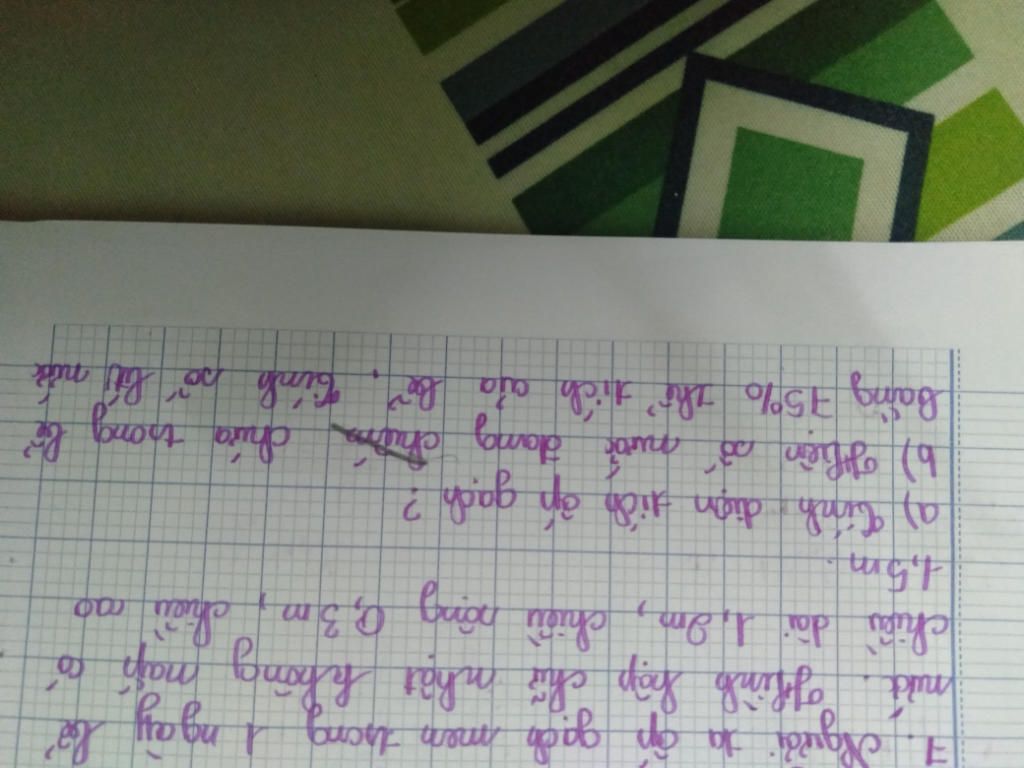 7. Người ta ốp gạch men trong 1 ngày bể
nước. Hình hộp chữ nhật không nắp có
chiều dài 1,2m, chiều rộng 0,3m, chiều cao
1,5m.
a) Tính diện tích ốp gạch?
b) Hiện số nước đang chứa trong bể
Bằng 75% thể tích của bể. Tính số lít nước